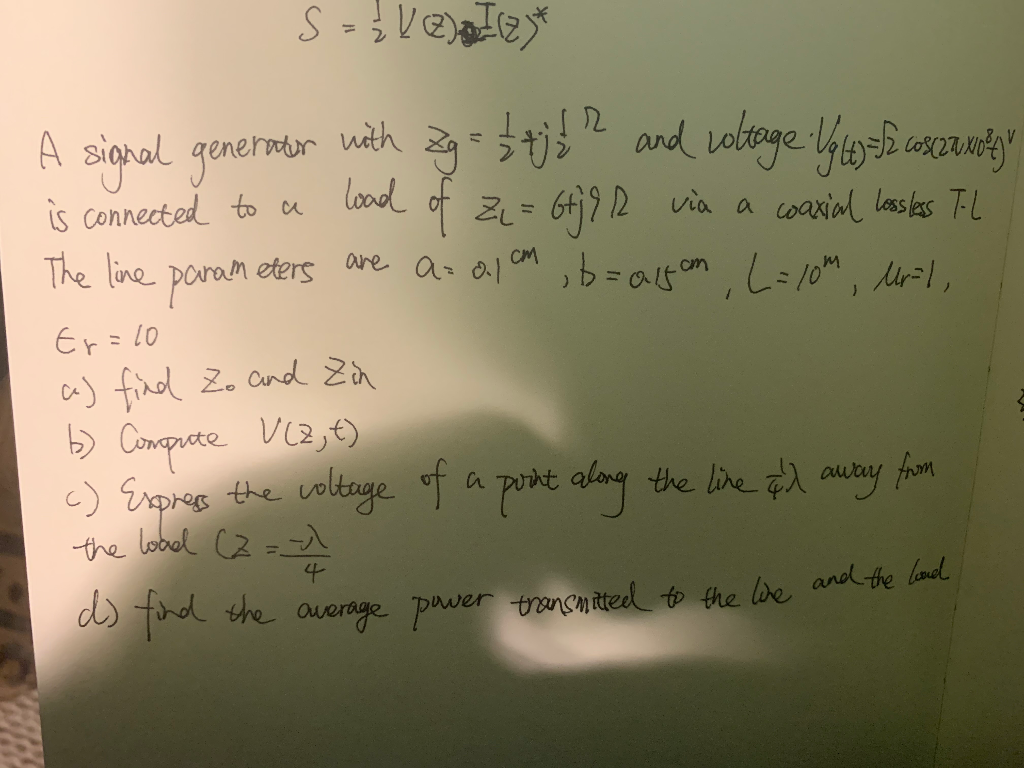 S = 1/2 V(z) I(z)*
A signal generator with Zg = 1/2 + j 1/2 Ω and voltage Vg(t) = √2 cos(2π×10⁸t) V
is connected to a load of ZL = 6+j9 Ω via a coaxial lossless T-L
The line parameters are a = 0.1 cm, b = 0.15 cm, L = 10 m, μr = 1,
εr = 10
a) find Zo and Zin
b) Compute V(z,t)
c) Express the voltage of a point along the line 1/4 λ away from
the load (z = -λ/4
d) find the average power transmitted to the line and the load